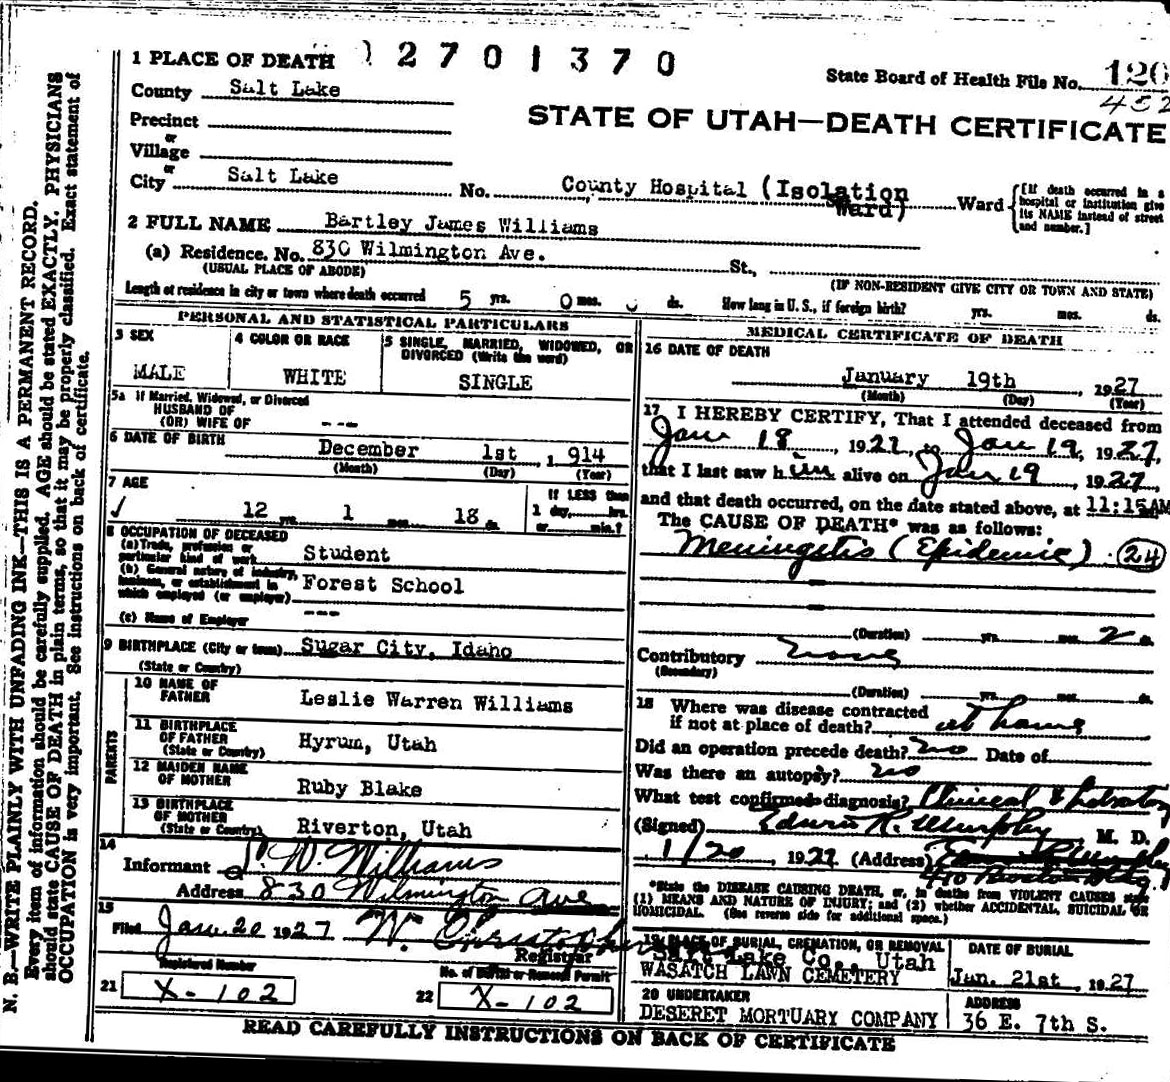 1 PLACE OF DEATH 2701370
State Board of Health File No. 120
452
County Salt Lake
STATE OF UTAH—DEATH CERTIFICATE
Precinct
or
Village
or
City Salt Lake No. County Hospital (Isolation Ward) Ward
[If death occurred in a hospital or institution give its NAME instead of street and number.]
2 FULL NAME Bartley James Williams
(a) Residence. No. 830 Wilmington Ave. St.,
(USUAL PLACE OF ABODE) (IF NON-RESIDENT GIVE CITY OR TOWN AND STATE)
Length of residence in city or town where death occurred 5 yrs. 0 mos. ds. How long in U. S., if foreign birth? yrs. mos. ds.
PERSONAL AND STATISTICAL PARTICULARS
3 SEX
MALE
4 COLOR OR RACE
WHITE
5 SINGLE, MARRIED, WIDOWED, OR
DIVORCED (Write the word)
SINGLE
5a If Married, Widowed, or Divorced
HUSBAND OF
(OR) WIFE OF ---
6 DATE OF BIRTH
December 1st, 1914
(Month) (Day) (Year)
7 AGE
12 yrs. 1 mos. 18 ds.
If LESS than
1 day, hrs.
or min.?
8 OCCUPATION OF DECEASED
(a) Trade, profession or
particular kind of work Student
(b) General nature of industry,
business, or establishment in
which employed (or employer) Forest School
(c) Name of Employer ---
9 BIRTHPLACE (City or town) Sugar City, Idaho
(State or Country)
PARENTS
10 NAME OF
FATHER Leslie Warren Williams
11 BIRTHPLACE
OF FATHER
(State or Country) Hyrum, Utah
12 MAIDEN NAME
OF MOTHER Ruby Blake
13 BIRTHPLACE
OF MOTHER
(State or Country) Riverton, Utah
14
Informant L. W. Williams
Address 830 Wilmington Ave
15
Filed Jan. 20 1927 W. Christopherson
Registrar
Registered Number
21 X-102
No. of Burial or Removal Permit
22 X-102
MEDICAL CERTIFICATE OF DEATH
16 DATE OF DEATH
January 19th, 1927
(Month) (Day) (Year)
17 I HEREBY CERTIFY, That I attended deceased from
Jan 18, 1927, to Jan 19, 1927,
that I last saw him alive on Jan 19, 1927,
and that death occurred, on the date stated above, at 11:15AM
The CAUSE OF DEATH* was as follows:
Meningitis (Epidemic) 24
(Duration) yrs. mos. 2 ds.
Contributory none
(Secondary)
(Duration) yrs. mos. ds.
18 Where was disease contracted
if not at place of death? at home
Did an operation precede death? no Date of
Was there an autopsy? no
What test confirmed diagnosis? Clinical & Laboratory
(Signed) Edwin R. Murphy, M. D.
1/20, 1927 (Address)
410 Boston Bldg
*State the DISEASE CAUSING DEATH, or, in deaths from VIOLENT CAUSES state
(1) MEANS AND NATURE OF INJURY; and (2) whether ACCIDENTAL, SUICIDAL OR
HOMICIDAL. (See reverse side for additional space.)
19 PLACE OF BURIAL, CREMATION, OR REMOVAL
Salt Lake Co., Utah
WASATCH LAWN CEMETERY
DATE OF BURIAL
Jan. 21st, 1927
20 UNDERTAKER
DESERET MORTUARY COMPANY
ADDRESS
36 E. 7th S.
READ CAREFULLY INSTRUCTIONS ON BACK OF CERTIFICATE
N. B.—WRITE PLAINLY WITH UNFADING INK—THIS IS A PERMANENT RECORD.
Every item of information should be carefully supplied. AGE should be stated EXACTLY. PHYSICIANS
should state CAUSE OF DEATH in plain terms, so that it may be properly classified. Exact statement of
OCCUPATION is very important. See instructions on back of certificate.